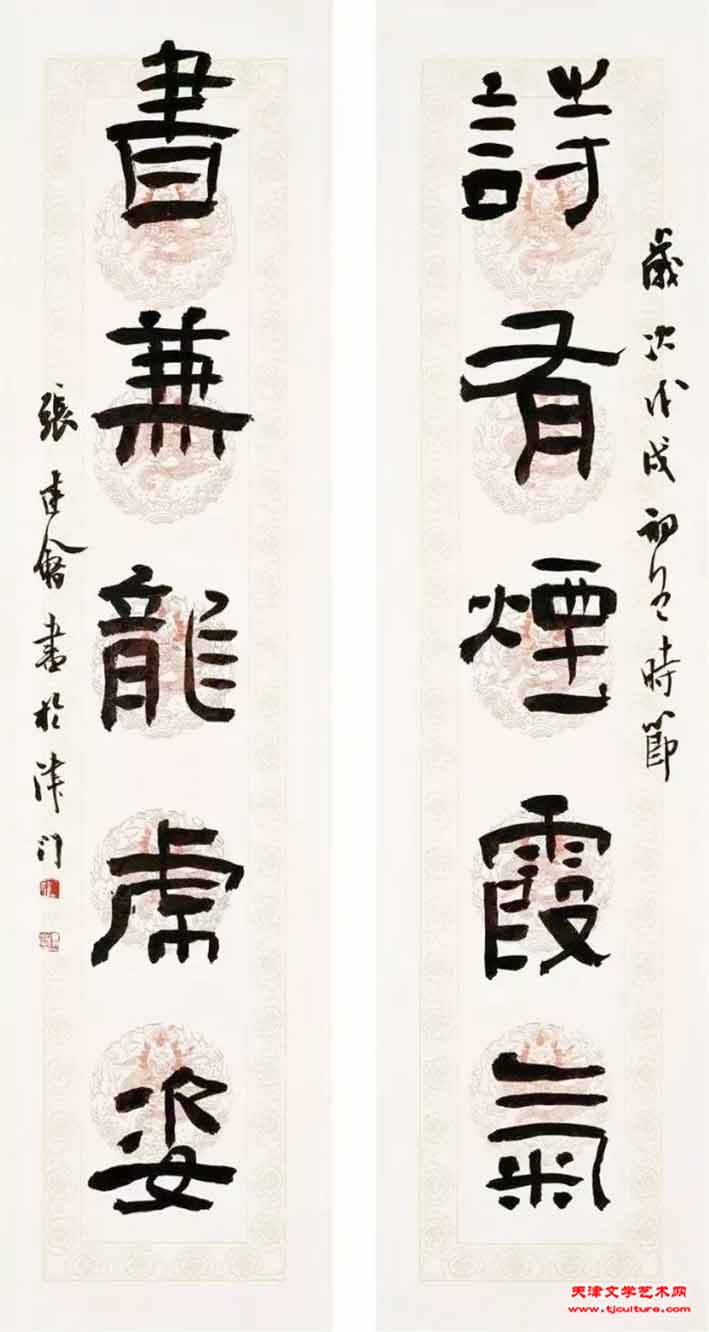 歲次戊戌初夏時節
詩有煙霞氣
書兼龍虎姿
張建會書於津門
天津文学艺术网
www.tjculture.com